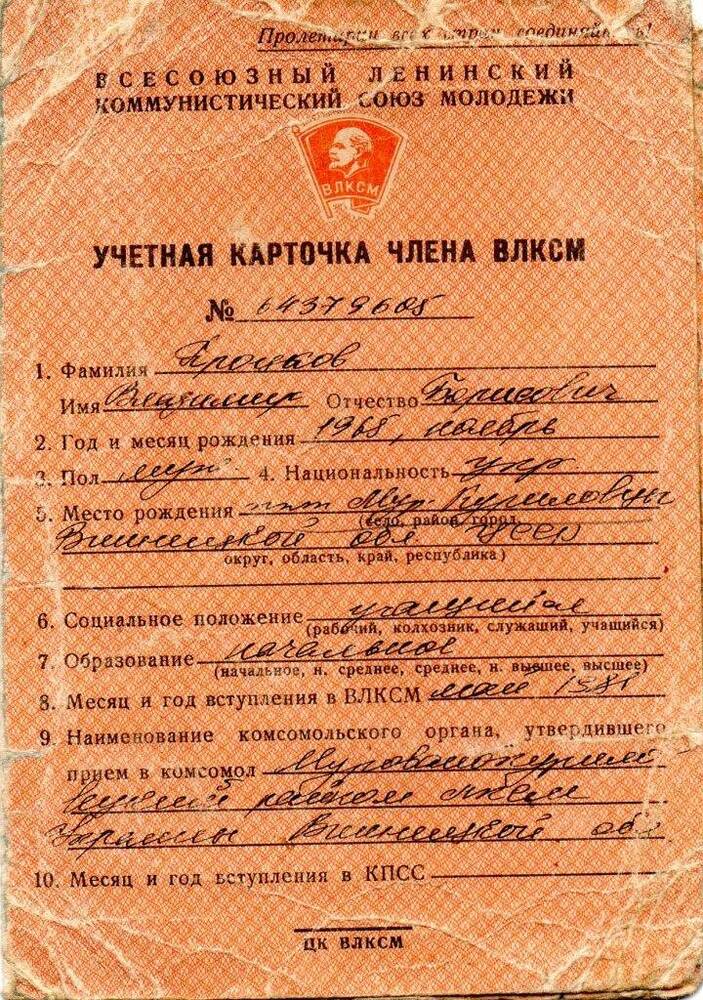 Пролетарии всех стран, соединяйтесь!
ВСЕСОЮЗНЫЙ ЛЕНИНСКИЙ
КОММУНИСТИЧЕСКИЙ СОЮЗ МОЛОДЕЖИ
ВЛКСМ
УЧЕТНАЯ КАРТОЧКА ЧЛЕНА ВЛКСМ
№ 64379605
1. Фамилия
Имя Владимир Отчество Борисович
2. Год и месяц рождения ноябрь
3. Пол муж 4. Национальность укр.
5. Место рождения пгт Мур. Куриловцы
(село, район, город,
Винницкой обл УССР
округ, область, край, республика)
6. Социальное положение учащийся
(рабочий, колхозник, служаший, учащийся)
7. Образование начальное
(начальное, н. среднее, среднее, н. высшее, высшее)
8. Месяц и год вступления в ВЛКСМ май
9. Наименование комсомольского органа, утвердившего
прием в комсомол Мурованокурило
вецкий райком лксм
Украины Винницкой обл
10. Месяц и год вступления в КПСС
ЦК ВЛКСМ